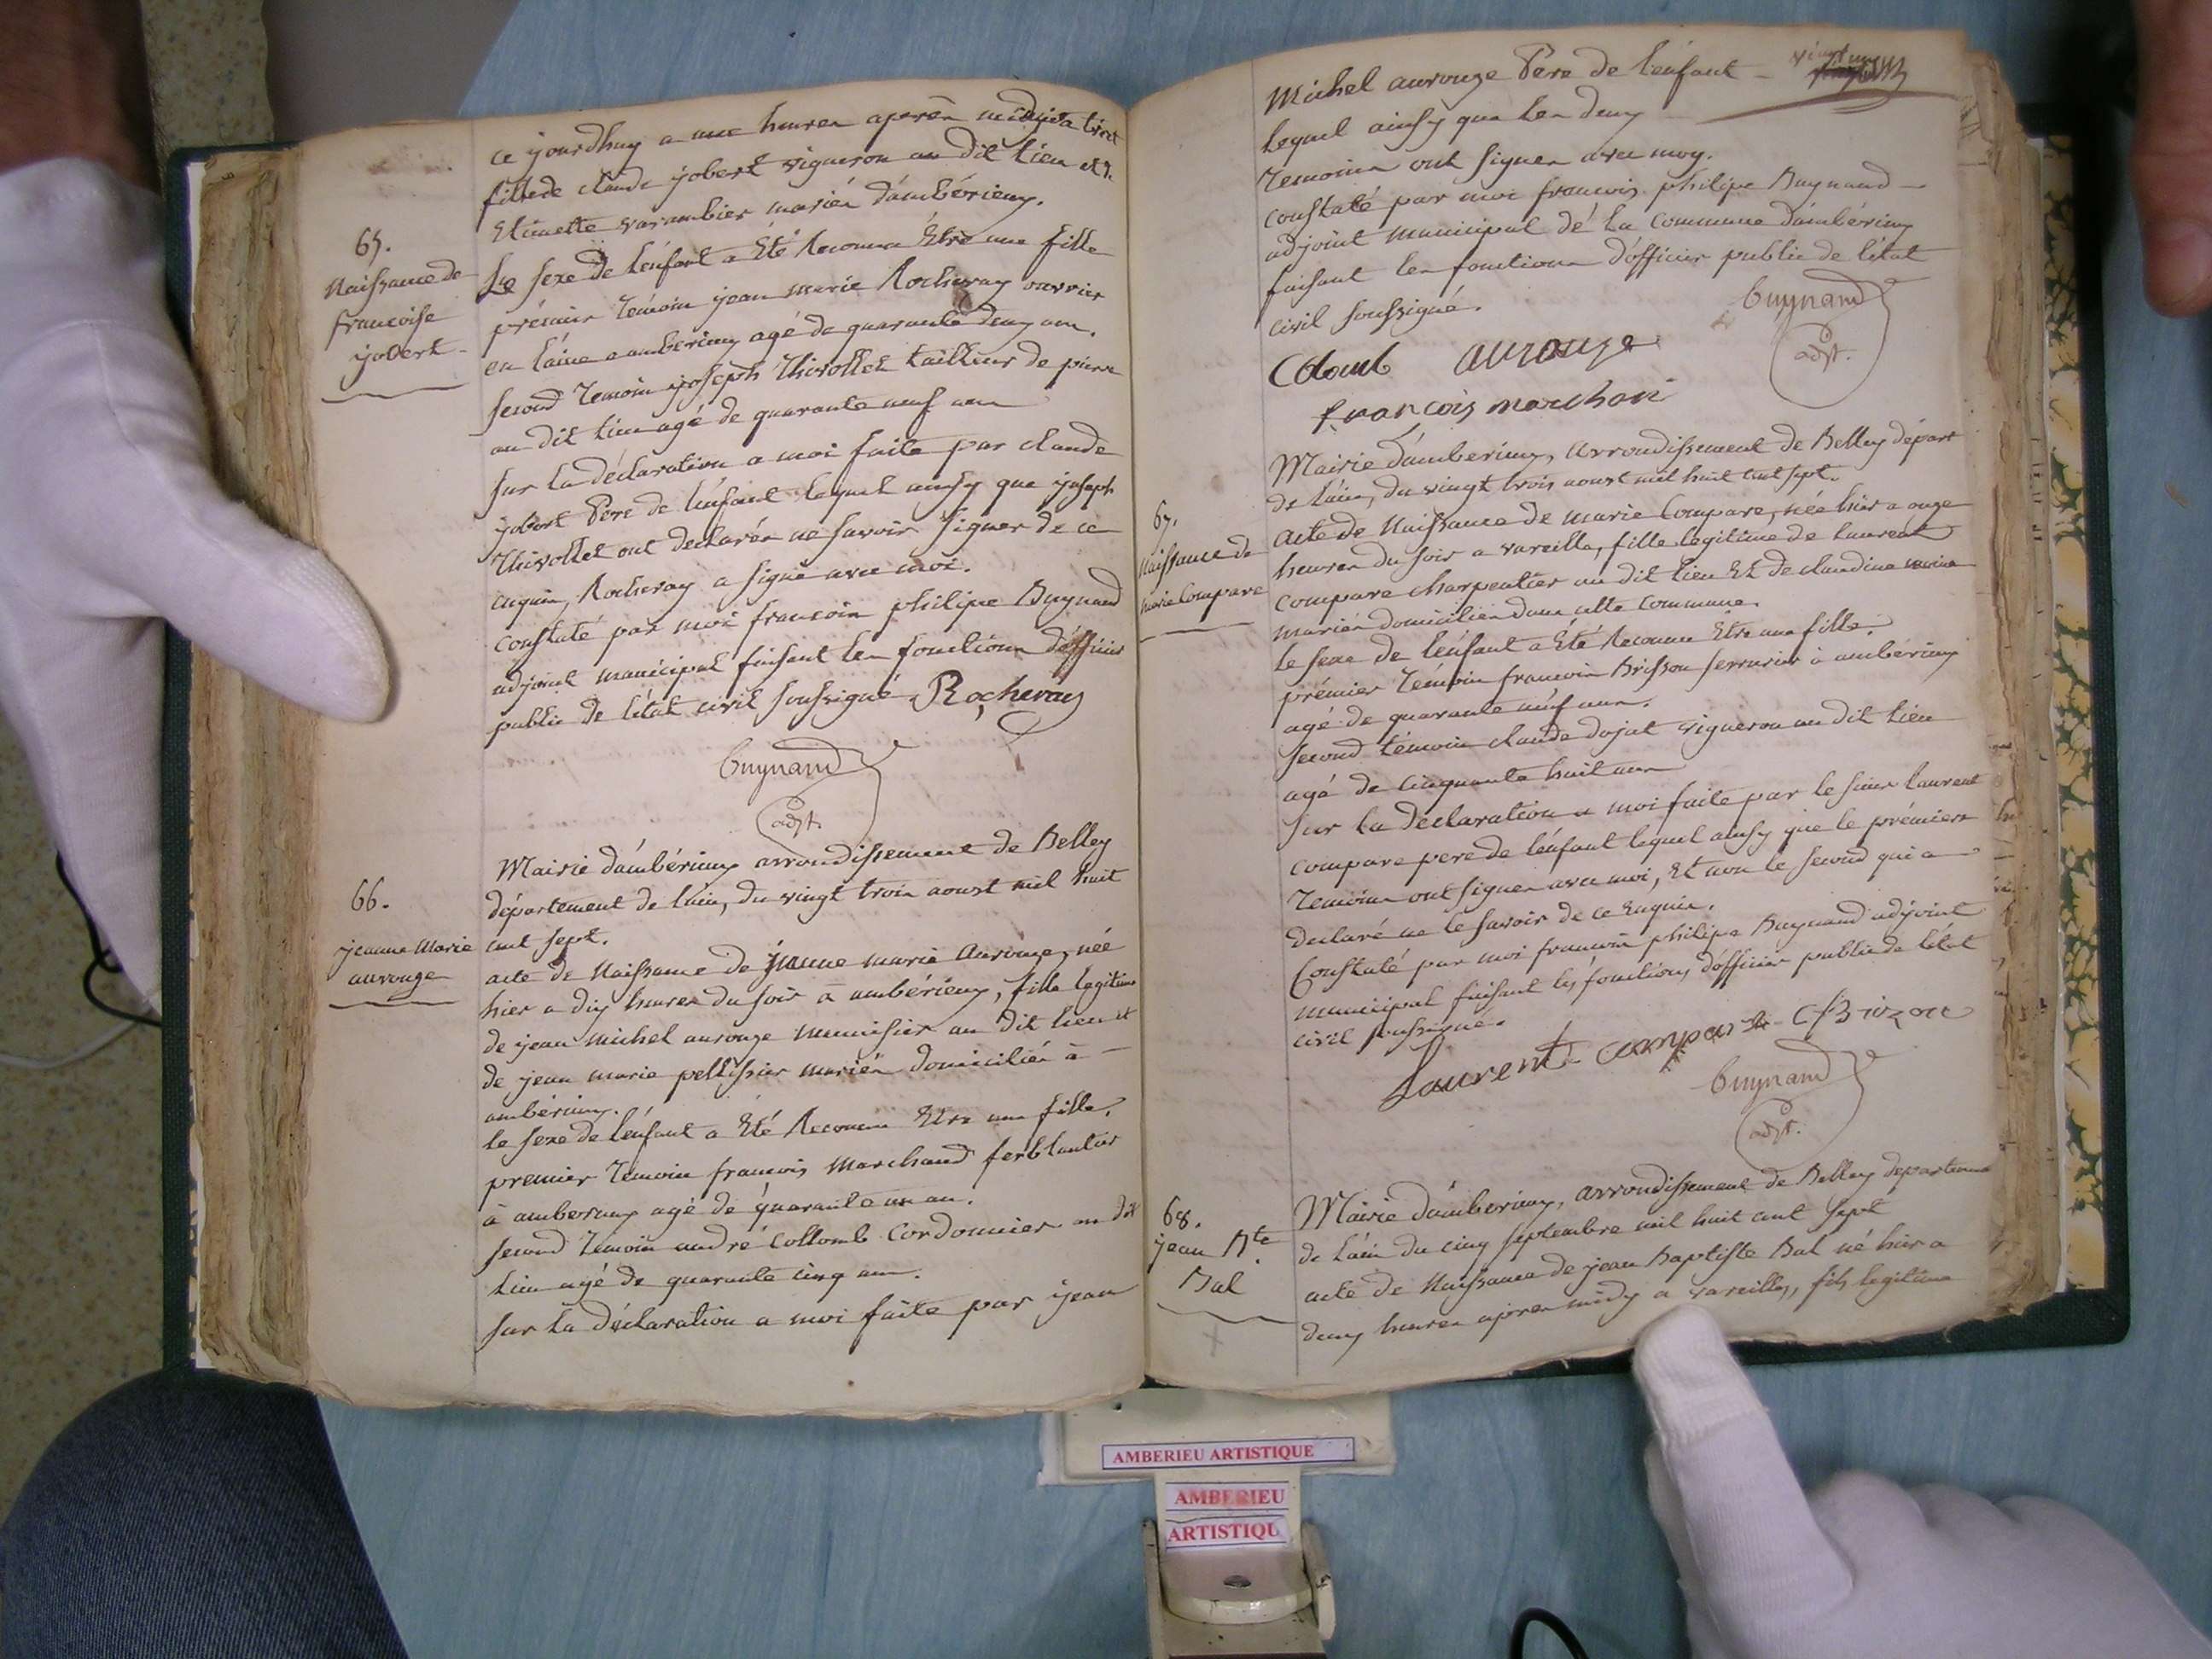 ce yourdhuy a une heures après midy a tiret
fille de claude jobert vigneron au dit lieu et d.
Etiennette varambier mariés d'ambérieux.
65.
Naissance de
francoise
jobert
Le sexe de l'enfant a Eté Reconnu Etre une fille
prémier Témoin jean marie Rocheray ouvrier
en laine a amberieux agé de quarante deux ans.
second Temoin joseph Thivollet tailleur de pierre
au dit lieu agé de quarante neuf ans
sur la déclaration a moi faite par claude
jobert Pere de l'enfant lequel ainsy que joseph
Thivollet ont declarés ne savoir signer de ce
enquis, Rocheray a signé avec moi.
constaté par moi francois philipe Buynand
adjoint municipal faisant les fonctions d'officier
public de l'état civil soussigné. Rocheray
buynand
adjt.
66.
jeanne Marie
aurouge
Mairie d'ambérieux arrondissement de Belley
département de l'ain, du vingt trois aoust mil huit
cent sept.
acte de Naissance de jeanne marie Aurouge, née
hier a dix heures du soir à ambérieux, fille legitime
de jean michel aurouge menuisier au dit lieu et
de jean marie pellissier mariés domiciliés à
ambérieux.
le sexe de l'enfant a Eté Reconnu Etre une fille.
premier Temoin francois Marchand ferblantier
à amberieux agé de quarante un an.
second Temoin andré Collomb Cordonnier au dit
lieu agé de quarante cinq ans.
sur la déclaration a moi faite par jean
vingt un
Michel aurouge Pere de l'enfant
lequel ainsy que les deux
Temoins ont signés avec moy.
constaté par moi francois philipe Buynand
adjoint municipal dé la commune d'ambérieux
faisant les fonctions d'officier public de l'état
civil soussigné.
buynand
adjt.
Colomb aurouge
francois marchan
67.
Naissance de
marie Compare
Mairie d'amberieux, arrondissement de Belley départ
de l'ain, du vingt trois aoust mil huit cent sept.
acte de Naissance de marie Compare, née hier a onze
heures du soir a vareille, fille legitime de laurent
compare charpentier au dit lieu Et de claudine
mariés domiciliés dans cette commune.
le sexe de l'enfant a Eté Reconnu Etre une fille.
prémier Témoin francois Brisson serrurier à ambérieux
agé de quarante neuf ans.
second témoin claude dujat vigneron au dit lieu
agé de cinquante huit ans
sur la déclaration a moi faite par le sieur laurent
compare pere de l'enfant lequel ainsy que le prémiers
Temoins ont signer avec moi, Et non le second qui a
declaré ne le savoir de ce Enquis.
Constaté par moi francois philipe Buynand adjoint
municipal faisant les fonctions d'officier public de l'état
civil soussigné.
Laurent Compare Brizon
buynand
adjt.
68.
jean Bte
Bal
Mairie d'amberieux, arrondissement de Belley departeme
de l'ain du cinq septembre mil huit cent sept
acte de Naissance de jean Baptiste Bal né hier a
deux heures apres midy a vareilles, fils legitime
AMBERIEU ARTISTIQUE
AMBERIEU
ARTISTIQU